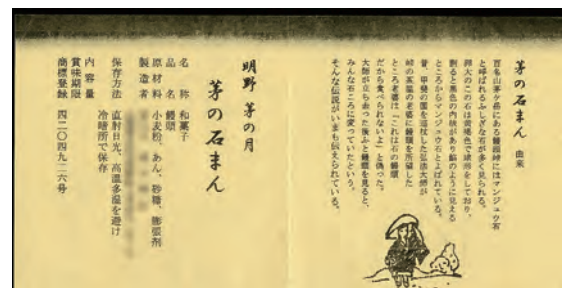 茅の石まん 由来
百名山茅ケ岳にある饅頭峠にはマンジュウ石
と呼ばれるふしぎな石が多く見られる。
卵大のこの石は黄褐色で球形をしており、
割ると黒色の内核があり餡のように見える
ところからマンジュウ石とよばれている。
昔、甲斐の国を巡杖した弘法大師が
峠の茶屋の老婆に饅頭を所望した
ところ老婆は「これは石の饅頭
だから食べられないよ」と偽った。
大師が立ち去った後ふと饅頭を見ると、
みんな石ころに変っていたという。
そんな伝説がいまも伝えられている。
明野 茅の月
茅の石まん
名称 和菓子
品名 饅頭
原材料 小麦粉、あん、砂糖、膨張剤
製造者
保存方法 直射日光、高温多湿を避け
冷暗所で保存
内容量
賞味期限
商標登録 四二〇四九二六号